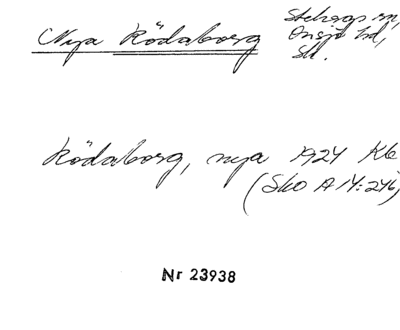 Nya Rödaborg
Stehags sn,
Onsjö hd,
Sk.
Rödaborg, nya 1924 Kb
(Sko A 14:246)
Nr 23938